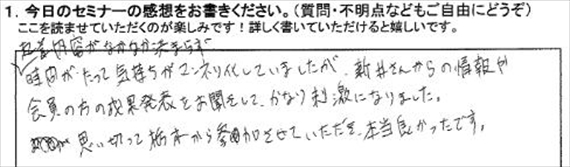 1. 今日のセミナーの感想をお書きください。(質問・不明点などもご自由にどうぞ)
ここを読ませていただくのが楽しみです!詳しく書いていただけると嬉しいです。
内容がなかなか決まらず
時間がたって気持ちがマンネリ化していましたが、新井さんからの情報や
会員の方の成果発表をお聞きして、かなり刺激になりました。
思い切って栃木から参加させていただき、本当良かったです。